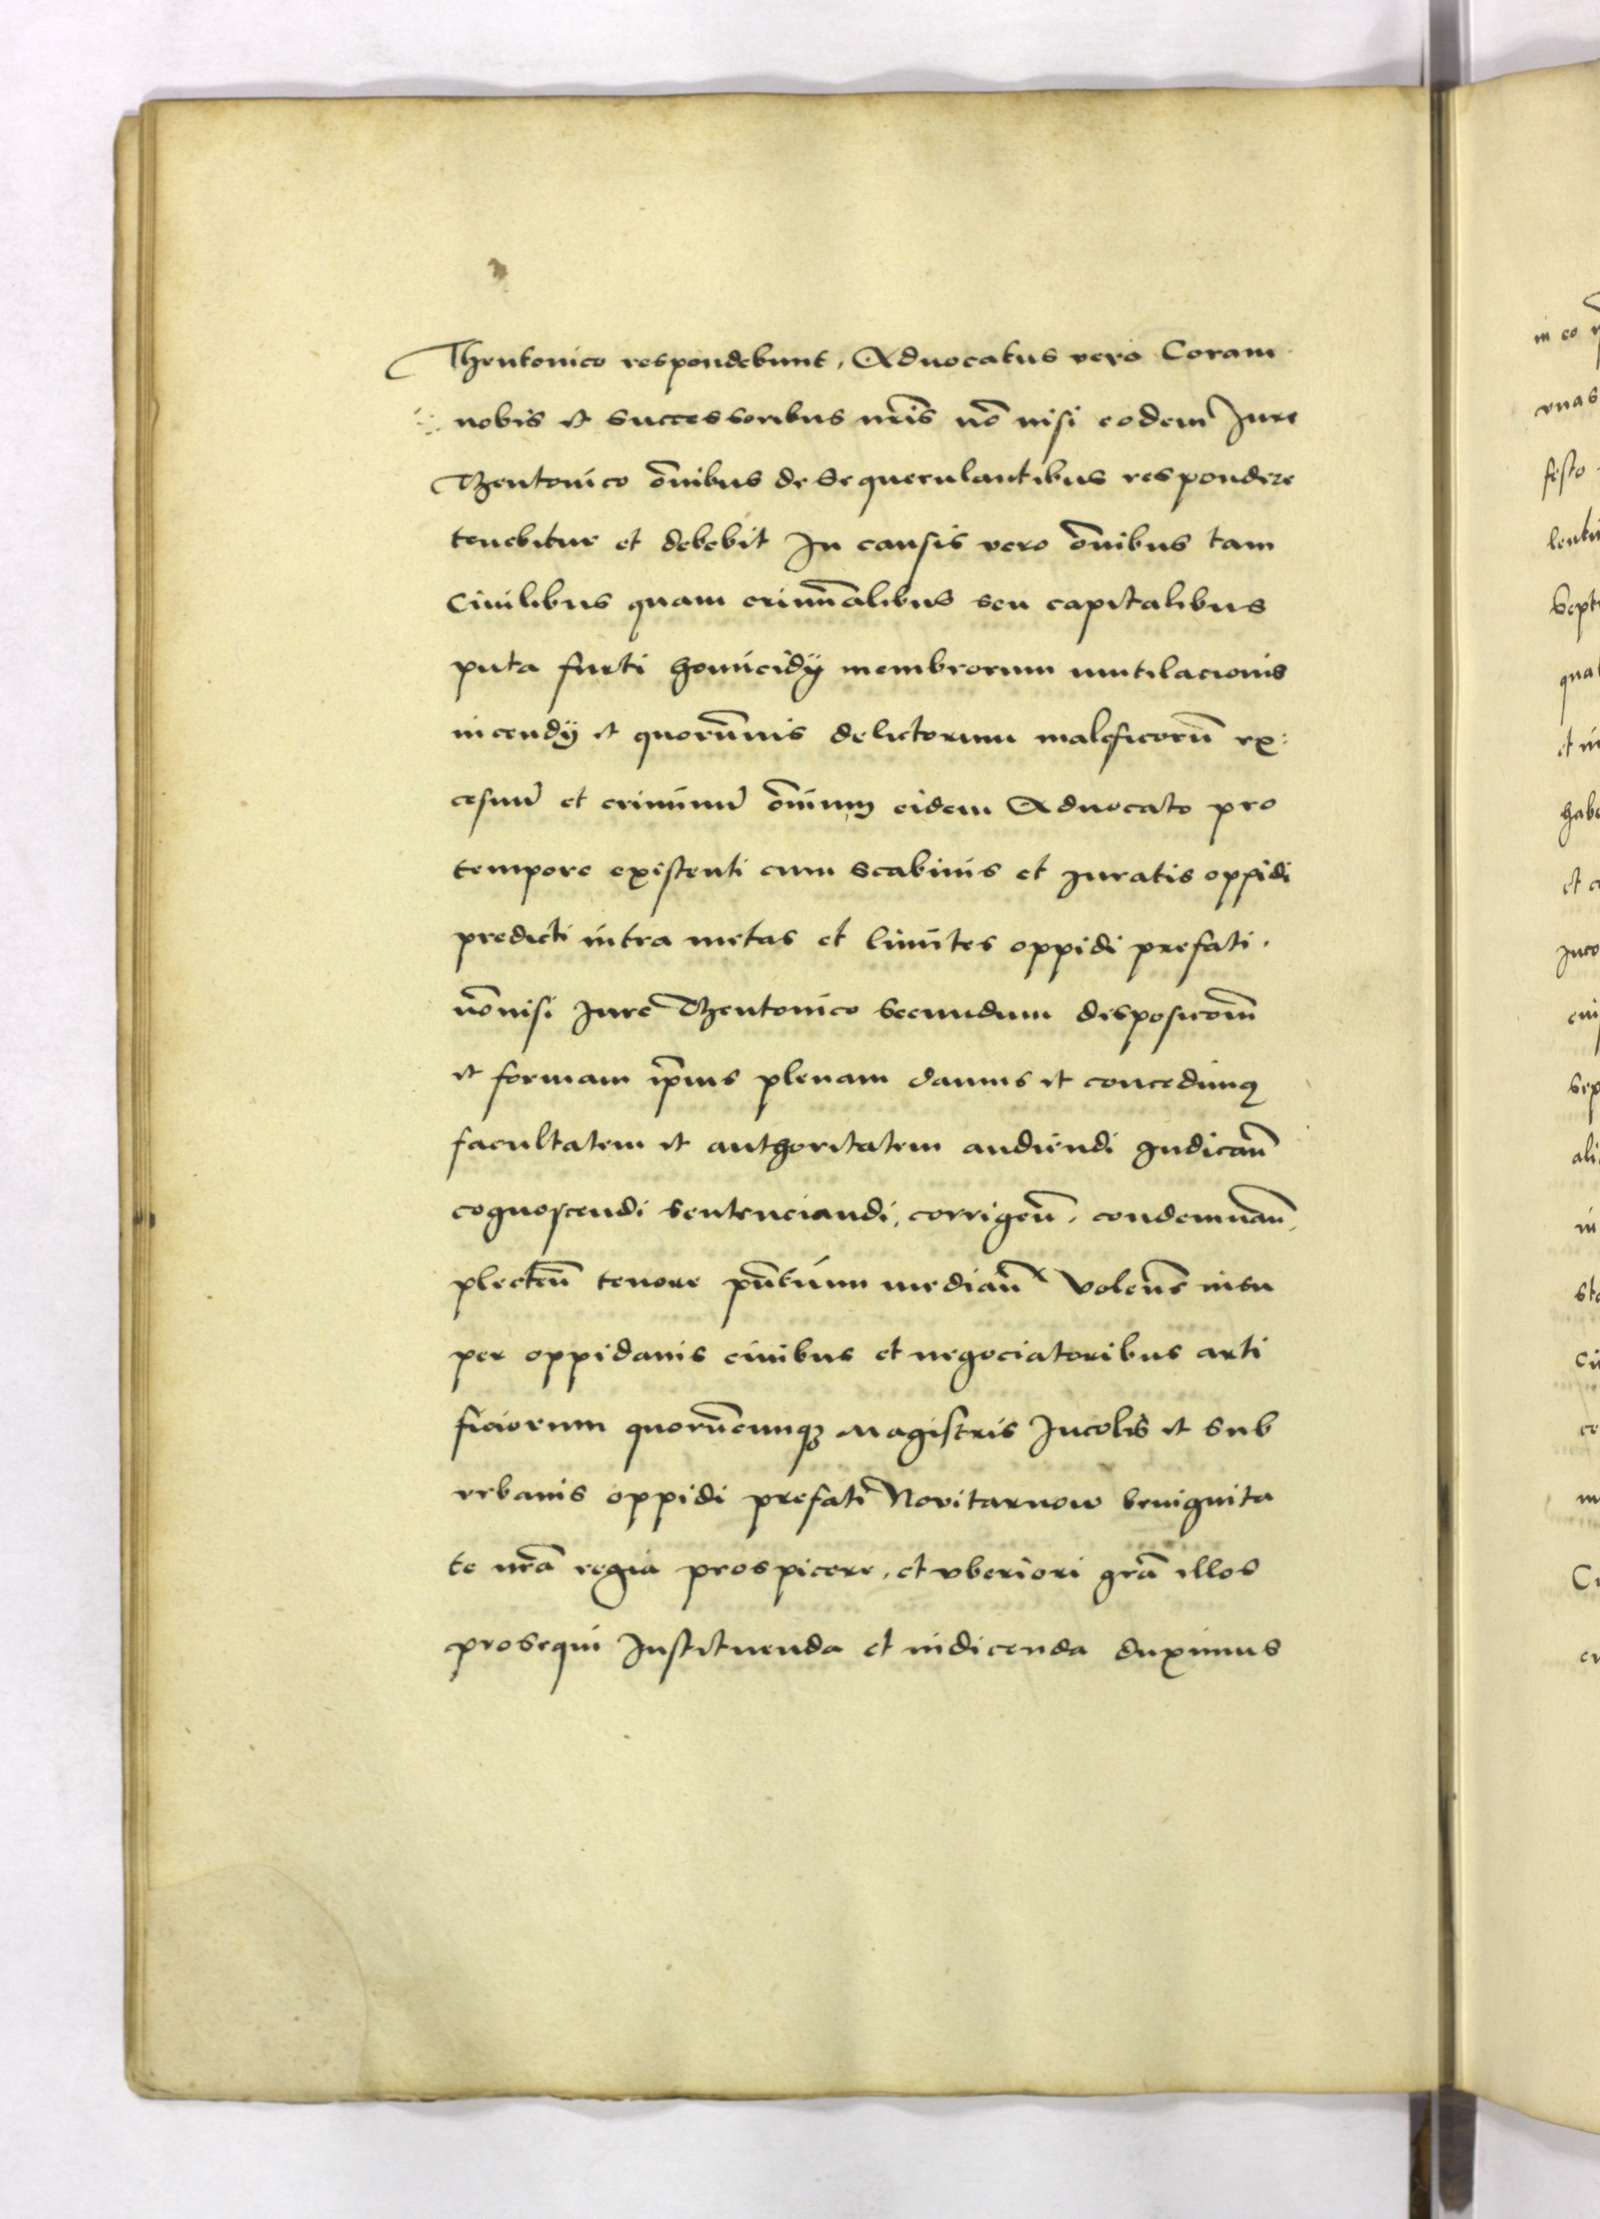 Theutonico respondebunt, Aduocatus vero Coram
nobis et successoribus nr̃is nõ nisi eodem Jure
Theutonico õnibus de se querulantibus respondere
tenebitur et debebit In causis vero õnibus tam
Ciuilibus quam crimĩalibus seu capitalibus
puta furti homicidÿ membrorum mutilacionis
incendÿ et quorũuis delictorum maleficorũ ex:
cesuũ et criminũ õnium eidem Aduocato pro
tempore existenti cum scabinis et Juratis oppidi
predicti intra metas et limites oppidi prefati.
nõnisi Jure Theutonico secundum disposicõm̃
et formam ip̃ius plenam damus et concedimꝰ
facultatem et authoritatem audiendi Judicañ
cognoscendi sentenciandi, corrigeñ, condemnañ,
plecteñ tenore pñtium mediañ Voleñs insu
per oppidanis ciuibus et negociatoribus arti
ficiorum quorũcunqꝫ Magistris Incolis et sub
vrbanis oppidi prefati Novitarnow benignita
te nr̃a regia prospicere, et vberiori gr̃a illos
prosequi Instituenda et indicenda duximus
in eo
vnas
festo
Sept
et in
habe
et c
Inco
sep
ali
in